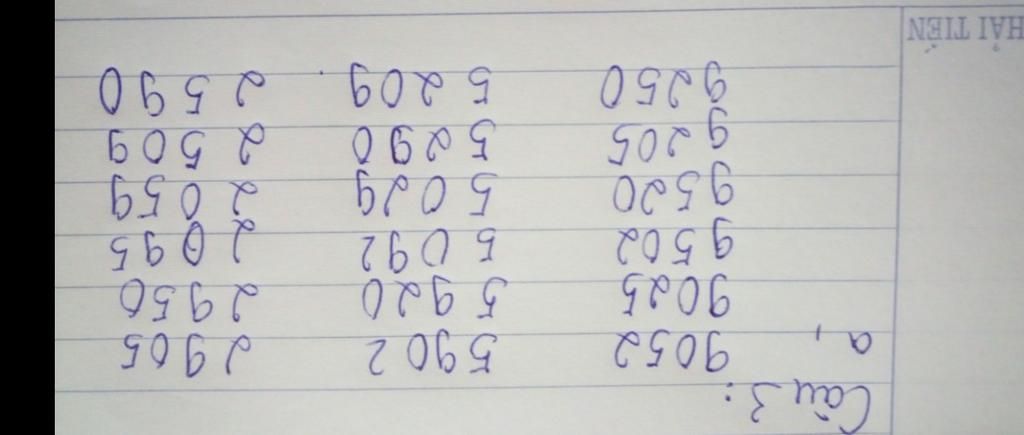 Câu 3:
a, 9052 5902 2905
9025 5920 2950
9502 5092 2095
9520 5029 2059
9205 5290 2509
9250 5209 2590
HẢI TIẾN